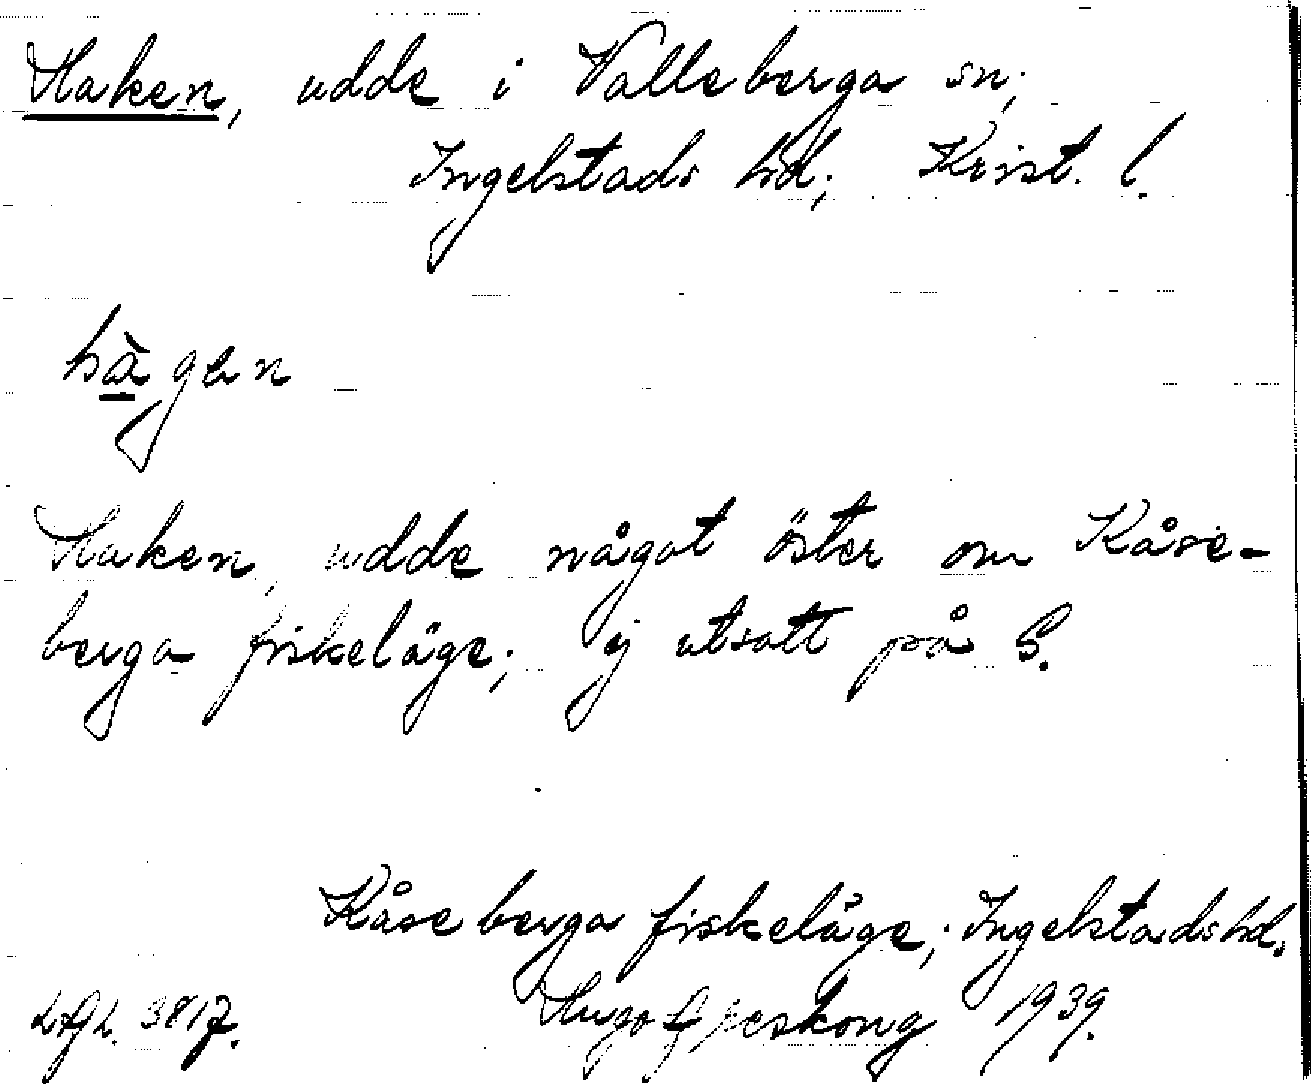 Haken, udde i Valleberga sn;
Ingelstads hd; Krist. l.
hàgen
Haken, udde något öster om Kåse-
berga fiskeläge; ej utsatt på G.
Kåseberga fiskeläge; Ingelstads hd.
3817. Hugo Areskoug 1939.